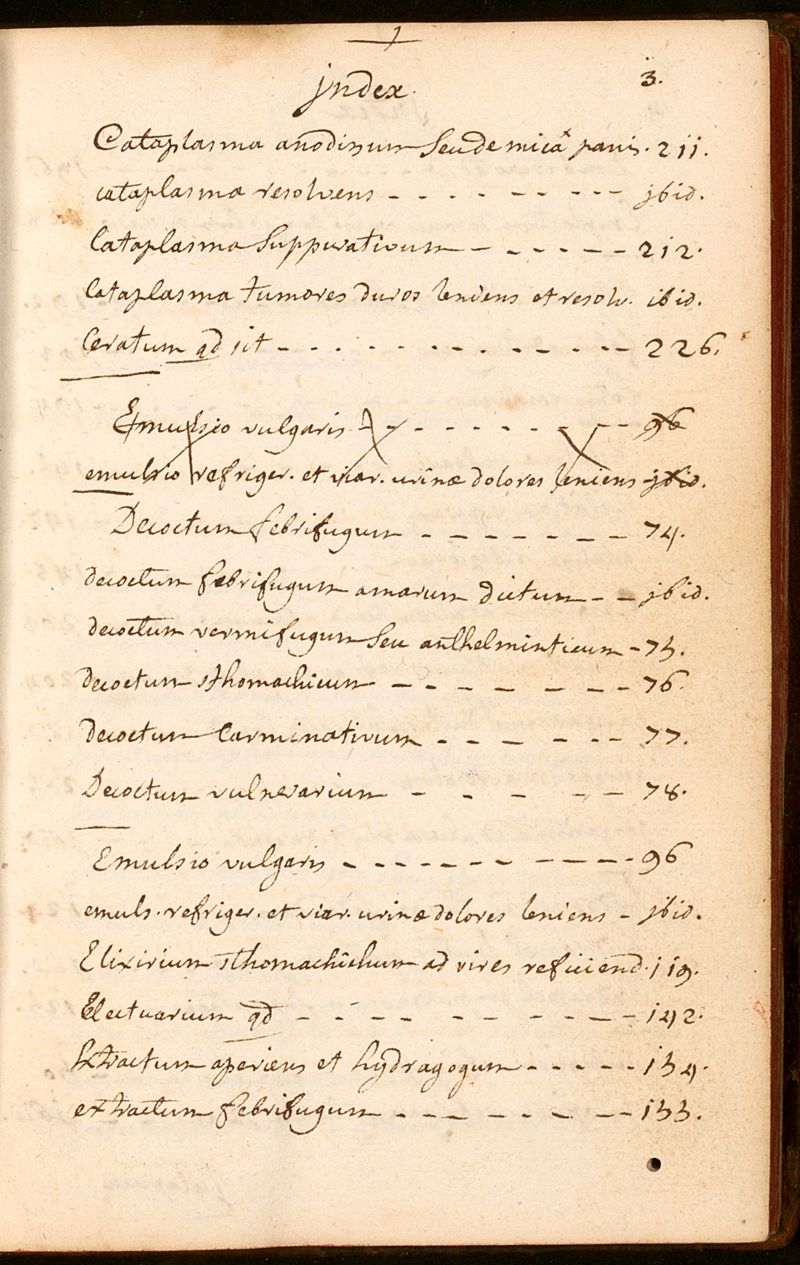 jndex. 3.
Cataplasma anodinum seu de micâ panis. 211.
cataplasma resolvens - - - - - - - - jbid.
Cataplasma suppurativum - - - - - - 212.
Cataplasma tumores duros leniens et resolv. ibid.
Ceratum qd sit - - - - - - - - - - - 226.
Emulsio vulgaris - - - - - - - - - 96
emulsio refriger. et viar. urinæ dolores leniens - jbid.
Decoctum febrifugum - - - - - - - 74.
decoctum febrifugum amarum dictum - - jbid.
decoctum vermifugum seu anthelminticum - 75.
Decoctum sthomachicum - - - - - - - 76.
Decoctum Carminativum - - - - - - 77.
Decoctum vulnerarium - - - - - - 78.
Emulsio vulgaris - - - - - - - - - - 96
emuls. refriger. et viar. urinæ dolores leniens - jbid.
Elixirium sthomachichum ad vires reficiend. 119.
Electuarium qd - - - - - - - - - - 142.
Extractum aperiens et hydragogum - - - - - 134.
extractum febrifugum - - - - - - - - 133.